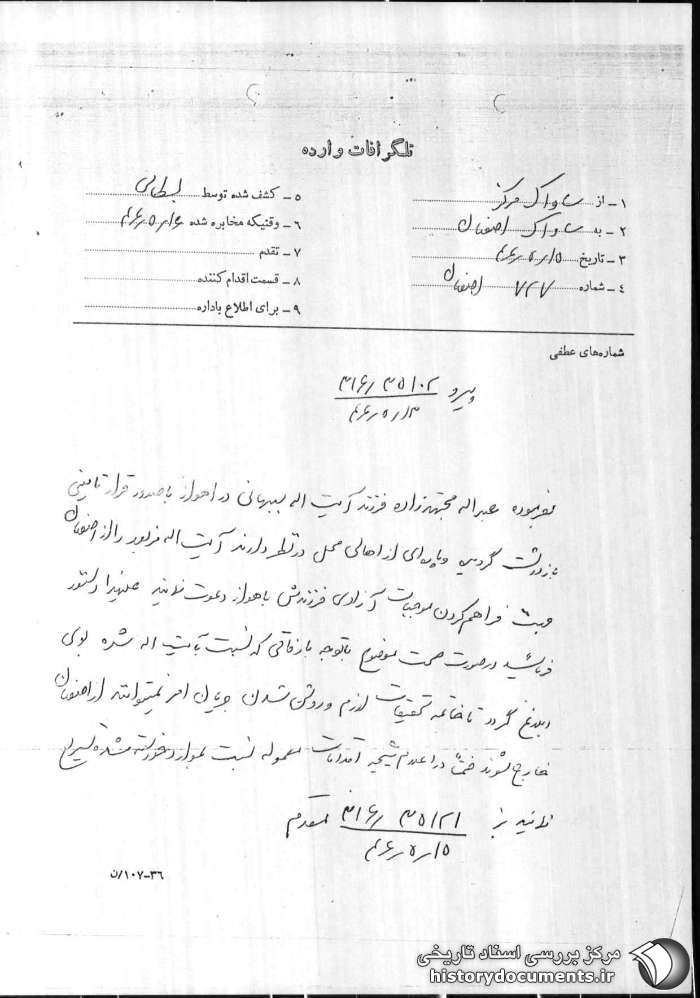 تلگرافات وارده
۱ـ از ساواک مرکز
۲ـ به ساواک اصفهان
۳ـ تاریخ ۴۶٫۵٫۱۵
۴ـ شماره ۷۲۷ اصفهان
۵ـ کشف شده توسط
۶ـ وقتیکه مخابره شده ۴۶٫۵٫۱۶
۷ـ تقدم
۸ـ قسمت اقدام کننده
۹ـ برای اطلاع باداره
شماره‌های عطفی
پیرو ۳۱۶٫ ۳۵۱۰۲
۴۶٫۵٫۱۳
بفرموده عبداله مجتهدزاده فرزند آیت اله بهبهانی در اهواز با صدور قرار تامینی
بازداشت گردیده و پاره‌ای از اهالی محل در نظر دارند آیت اله مزبور را از اصفهان
جهت فراهم کردن موجبات آزادی فرزندش باهواز دعوت نمایند علیهذا دستور
فرمائید در صورت صحت موضوع با توجه به که نسبت به آیت اله شده بوی
ابلاغ گردد تا خاتمه تحقیقات لازم و روشن شدن جریان امر نمیتوانند از اصفهان
خارج شوند ضمناً در اعلام نتیجه اقدامات معموله نسبت بموارد خواسته شده تسریع
نمایند ۳۱۶٫ ۳۵۱۲۱ مقدم
۴۶٫۵٫۱۵
۳۶ـ۱۰۷/ن
مرکز بررسی اسناد تاریخی
historydocuments.ir